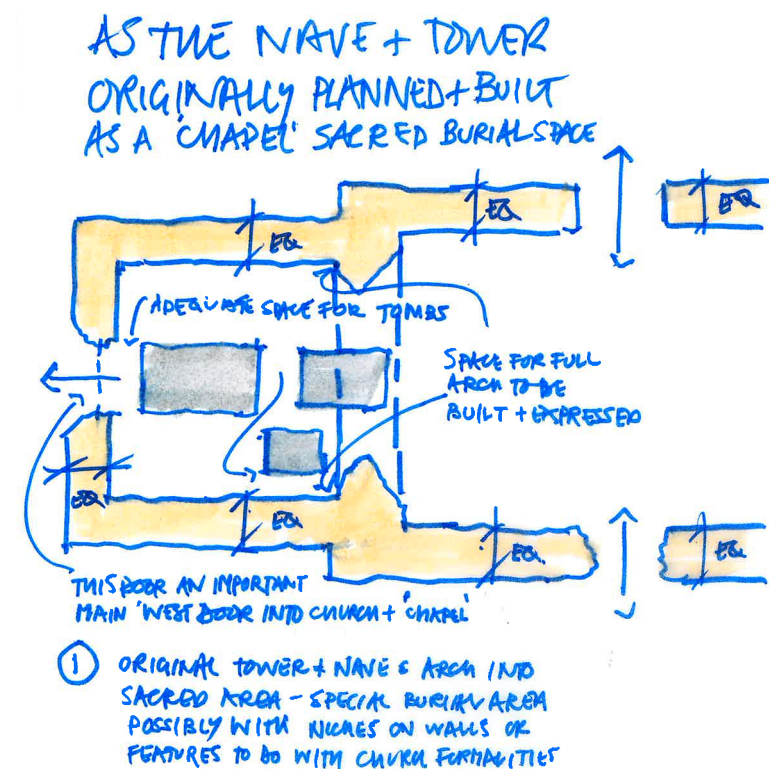 AS THE NAVE + TOWER
ORIGINALLY PLANNED + BUILT
AS A 'CHAPEL' SACRED BURIAL SPACE
EQ
EQ
EQ
ADEQUATE SPACE FOR TOMBS
SPACE FOR FULL
ARCH TO BE
BUILT + EXPRESSED
EQ
EQ
EQ.
EQ
THIS DOOR AN IMPORTANT
MAIN 'WEST DOOR INTO CHURCH + 'CHAPEL'
1 ORIGINAL TOWER + NAVE & ARCH INTO
SACRED AREA - SPECIAL BURIAL AREA
POSSIBLY WITH NICHES ON WALLS OR
FEATURES TO DO WITH CHURCH FORMALITIES